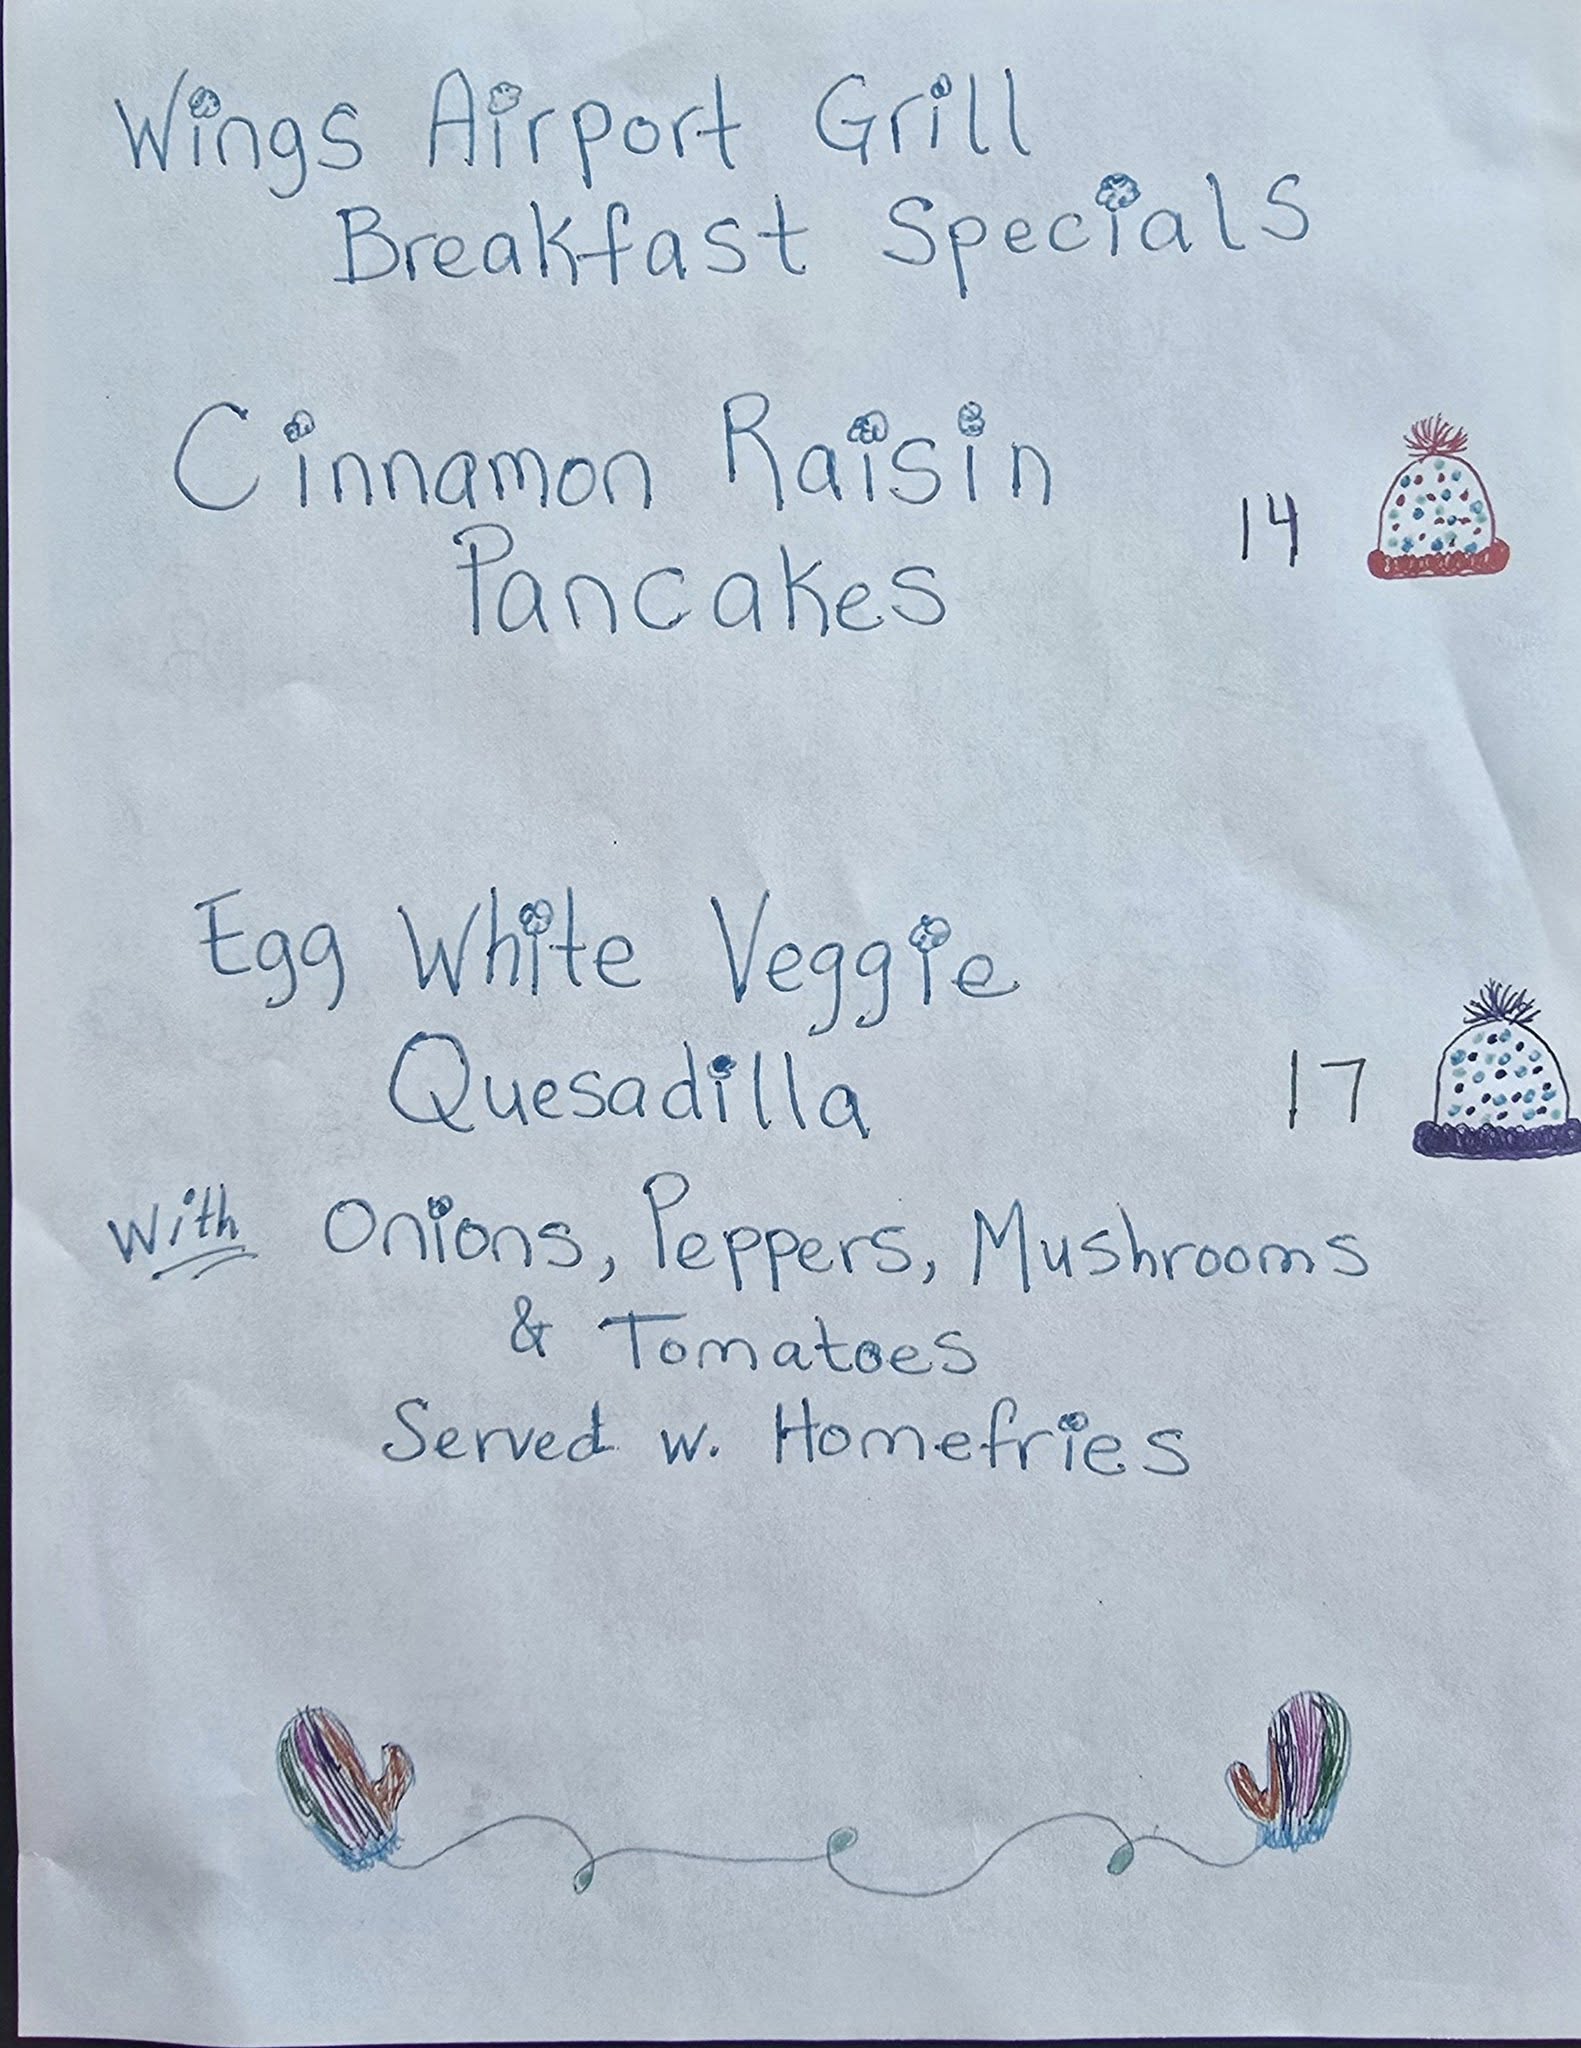 Wings Airport Grill
Breakfast Specials
Cinnamon Raisin
Pancakes 14
Egg White Veggie
Quesadilla 17
With Onions, Peppers, Mushrooms
& Tomatoes
Served w. Homefries